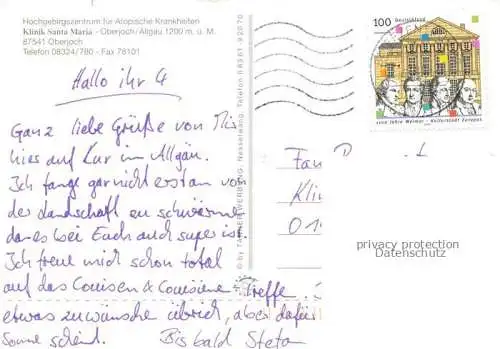 Hochgebirgszentrum für Atopische Krankheiten
Klinik Santa Maria - Oberjoch/Allgäu 1200 m ü. M.
87541 Oberjoch
Telefon 08324/780 - Fax 78101
Hallo ihr 4
Ganz liebe Grüße von
hies auf Kur im Allgäu.
Ich fange gar nicht erst an von
der Landschaft zu schwärme
da es bei Euch auch super ist.
Ich freue mich schon total
auf das Cousen & Cousinen Treffe
etwas zu wünsche übrich, aber dafür
Sonne scheint. Bis bald Stefan
Nesselwang, Telefon 08361-92070
100 Deutschland
1100 Jahre Weimar - Kulturstadt Europas
Fam
Klin
01
privacy protection
Datenschutz